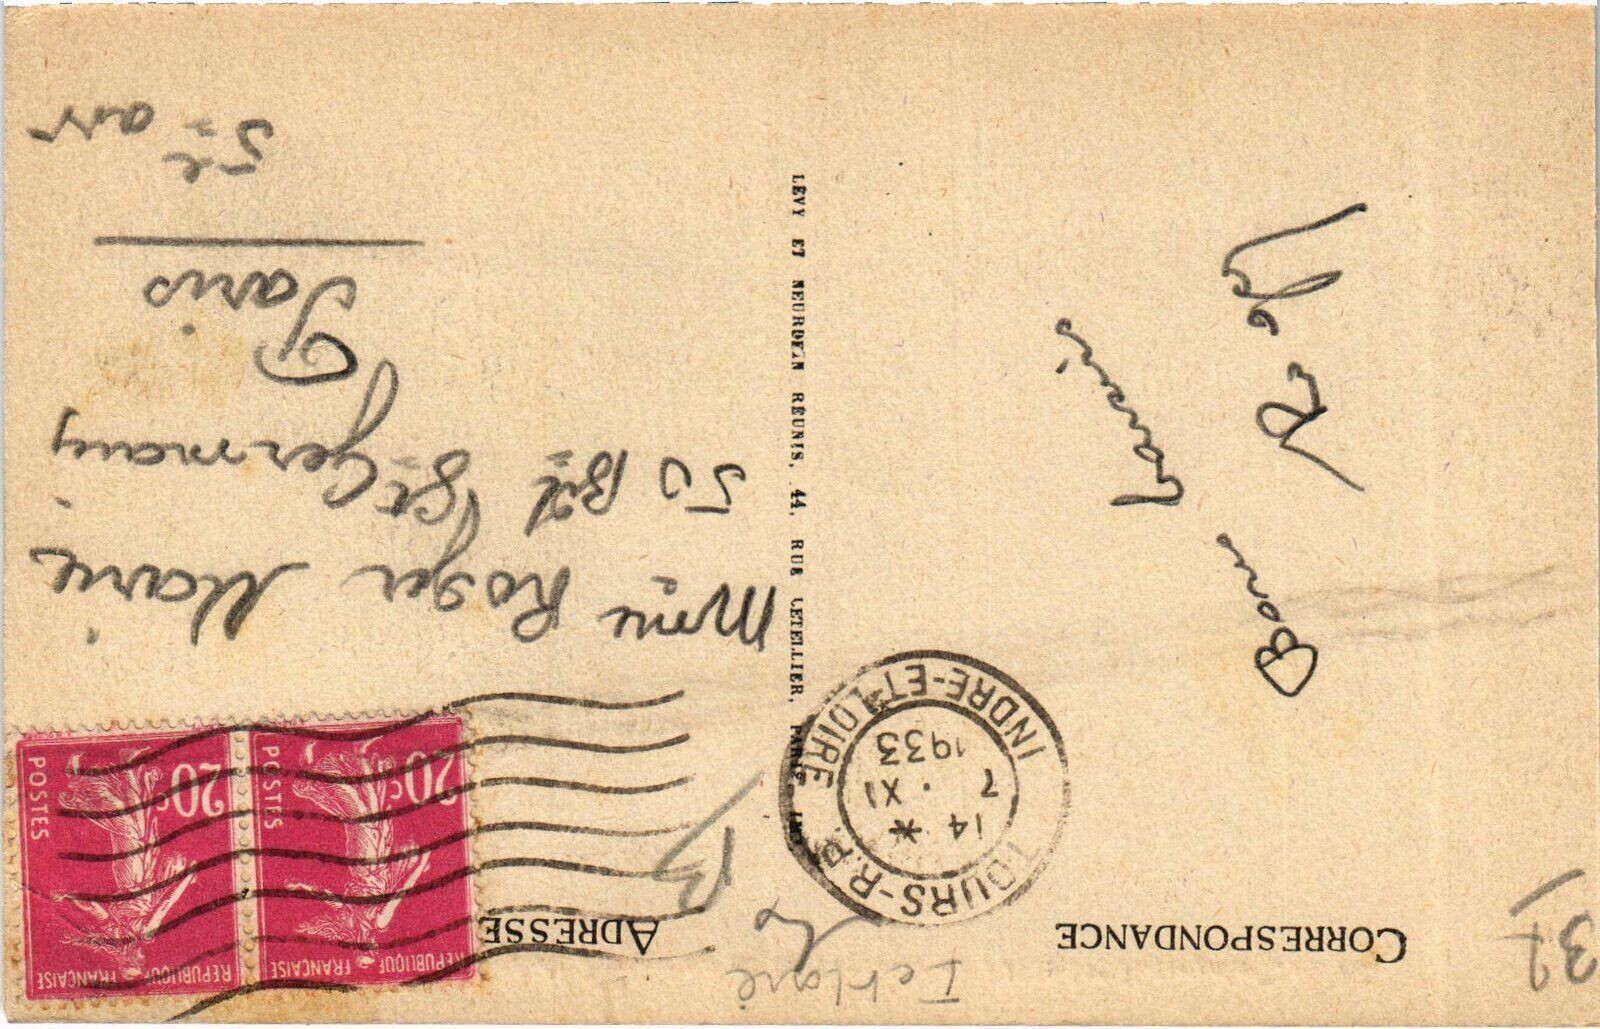 CORRESPONDANCE
ADRESSE
TOURS-R.P.
INDRE-ET-LOIRE
14 *
7 . XI
1933
RÉPUBLIQUE FRANÇAISE
20c
POSTES
RÉPUBLIQUE FRANÇAISE
20c
POSTES
Bons
Baisers
Mme Roger Marie
50 Bd St Germain
Paris
5e arr
LÉVY ET NEURDEIN RÉUNIS, 44, RUE LETELLIER, PARIS